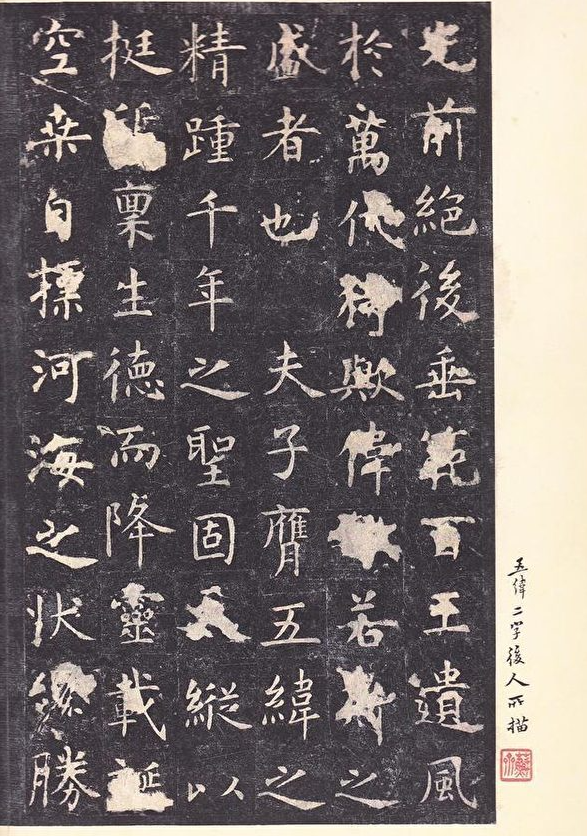 光前絕後垂範百王遺風
扵萬代猗歟偉若斯之
盛者也 夫子膺五緯之
精踵千年之聖固天縱以
挺稟生德而降靈載誕
空桒自標河海之狀勝
五偉二字後人所描